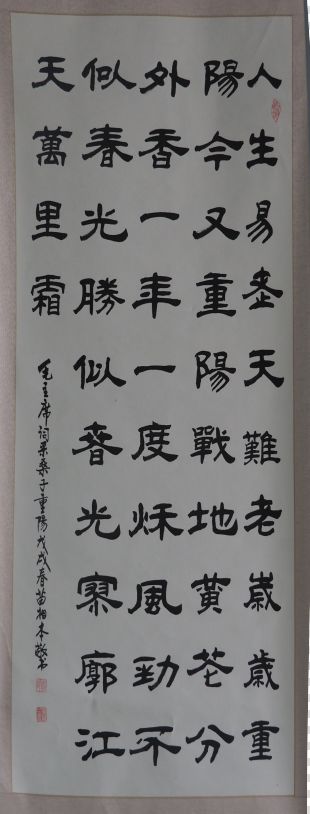 人生易老天難老歲歲重
陽今又重陽戰地黄花分
外香一年一度秌風勁不
似春光勝似春光寥廓江
天萬里霜
毛主席詞采桑子重陽戊戌春苗相本敬书